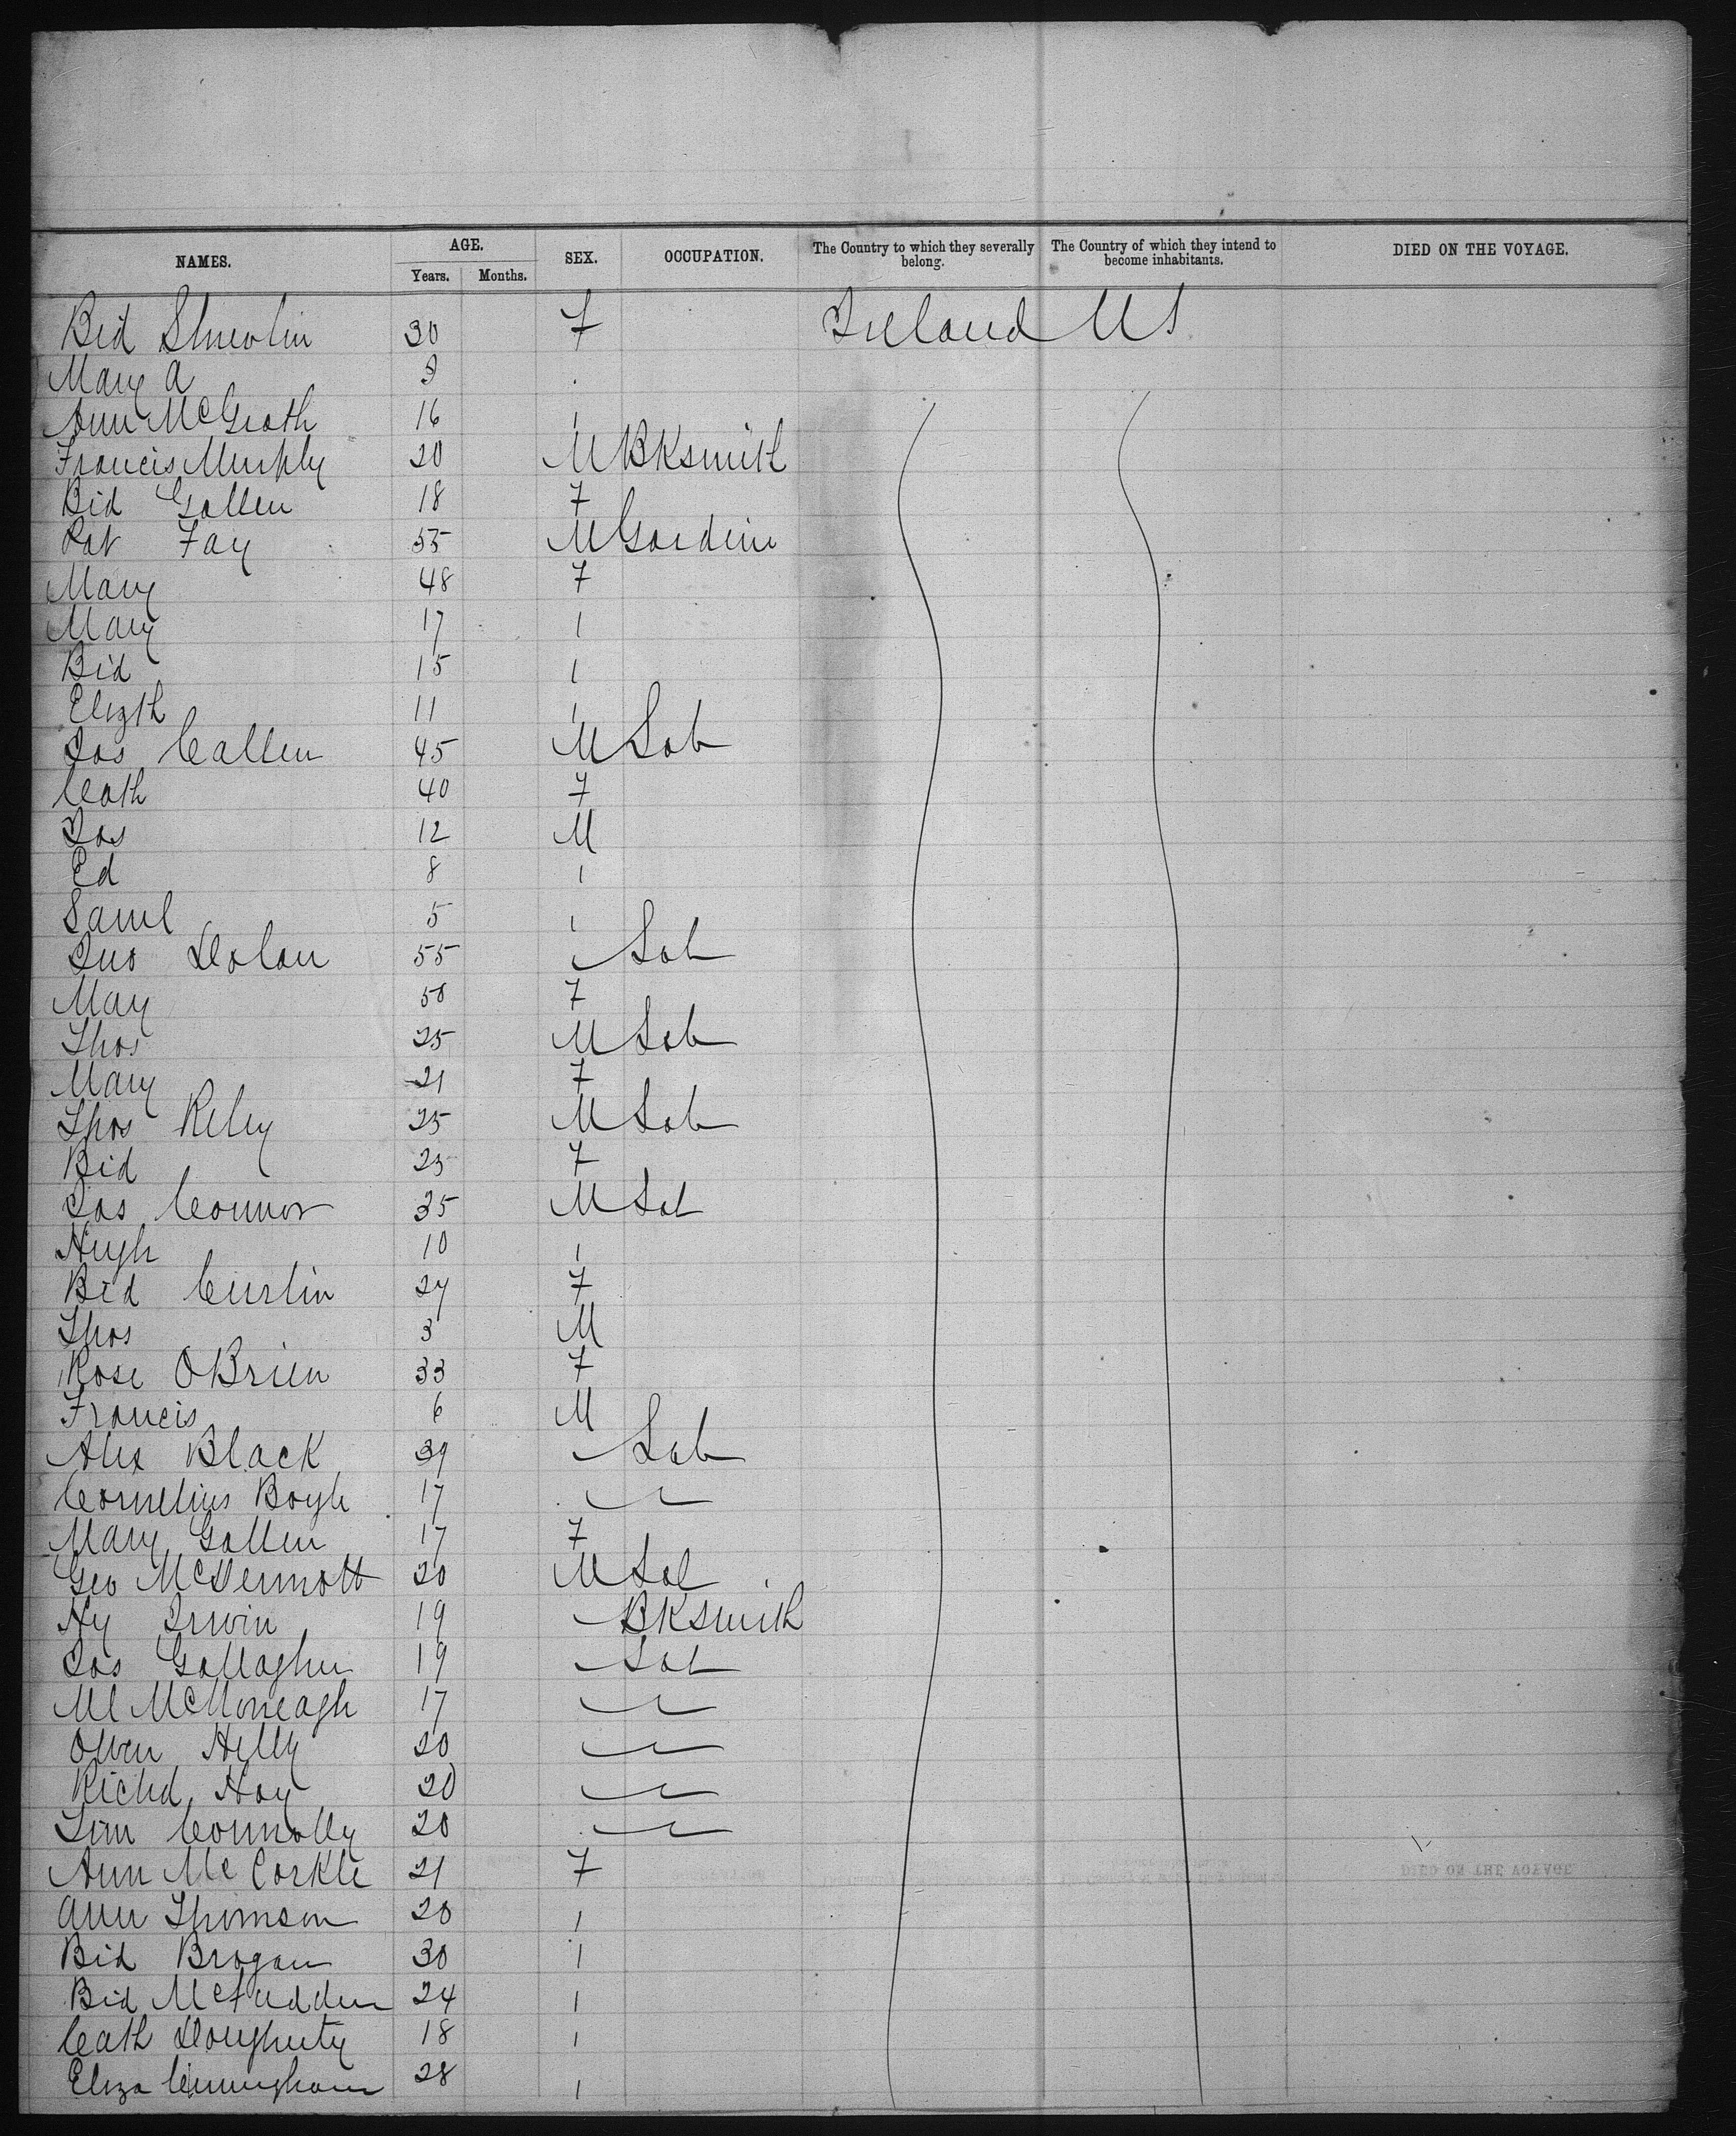 NAMES. AGE. SEX. OCCUPATION. The Country to which they severally belong. The Country of which they intend to become inhabitants. DIED ON THE VOYAGE.
Years. Months.
Bid 30 F Ireland US
Mary A
Ann McGrath 16 "
Francis Murphy 20 M BKsmith
Bid Gallen 18 F
Pat Fay 55 M
Mary 48 F
Mary 17 "
Bid 15 "
Elizth 11 "
Jas Callen 45 M Lab
Cath 40 F
Jas 12 M
Ed 8 "
Saml 5 "
Jno Dolan 55 " Lab
Mary 50 F
Thos 25 M Lab
Mary 21 F
Thos Reley 25 M Lab
Bid 23 F
Jas Connor 35 M Lab
Hugh 10 "
Bid Curlin 27 F
Thos 3 M
Rose OBrien 33 F
Francis 6 M
Alex Black 39 " Lab
Cornelius Boyle 17 " "
Mary Gallen 17 F
Geo McDermott 20 M Lab
Hy Irwin 19 " BKsmith
Jas Gallagher 19 " Lab
Ml McMoneagle 17 " "
Owen 20 " "
Richd Hay 20 " "
Tim Connolly 20 " "
Ann McCorkle 21 F
Ann Thomson 20 "
Bid Brogan 30 "
Bid McFadden 24 "
Cath Dougherty 18 "
Eliza Cunningham 28 "